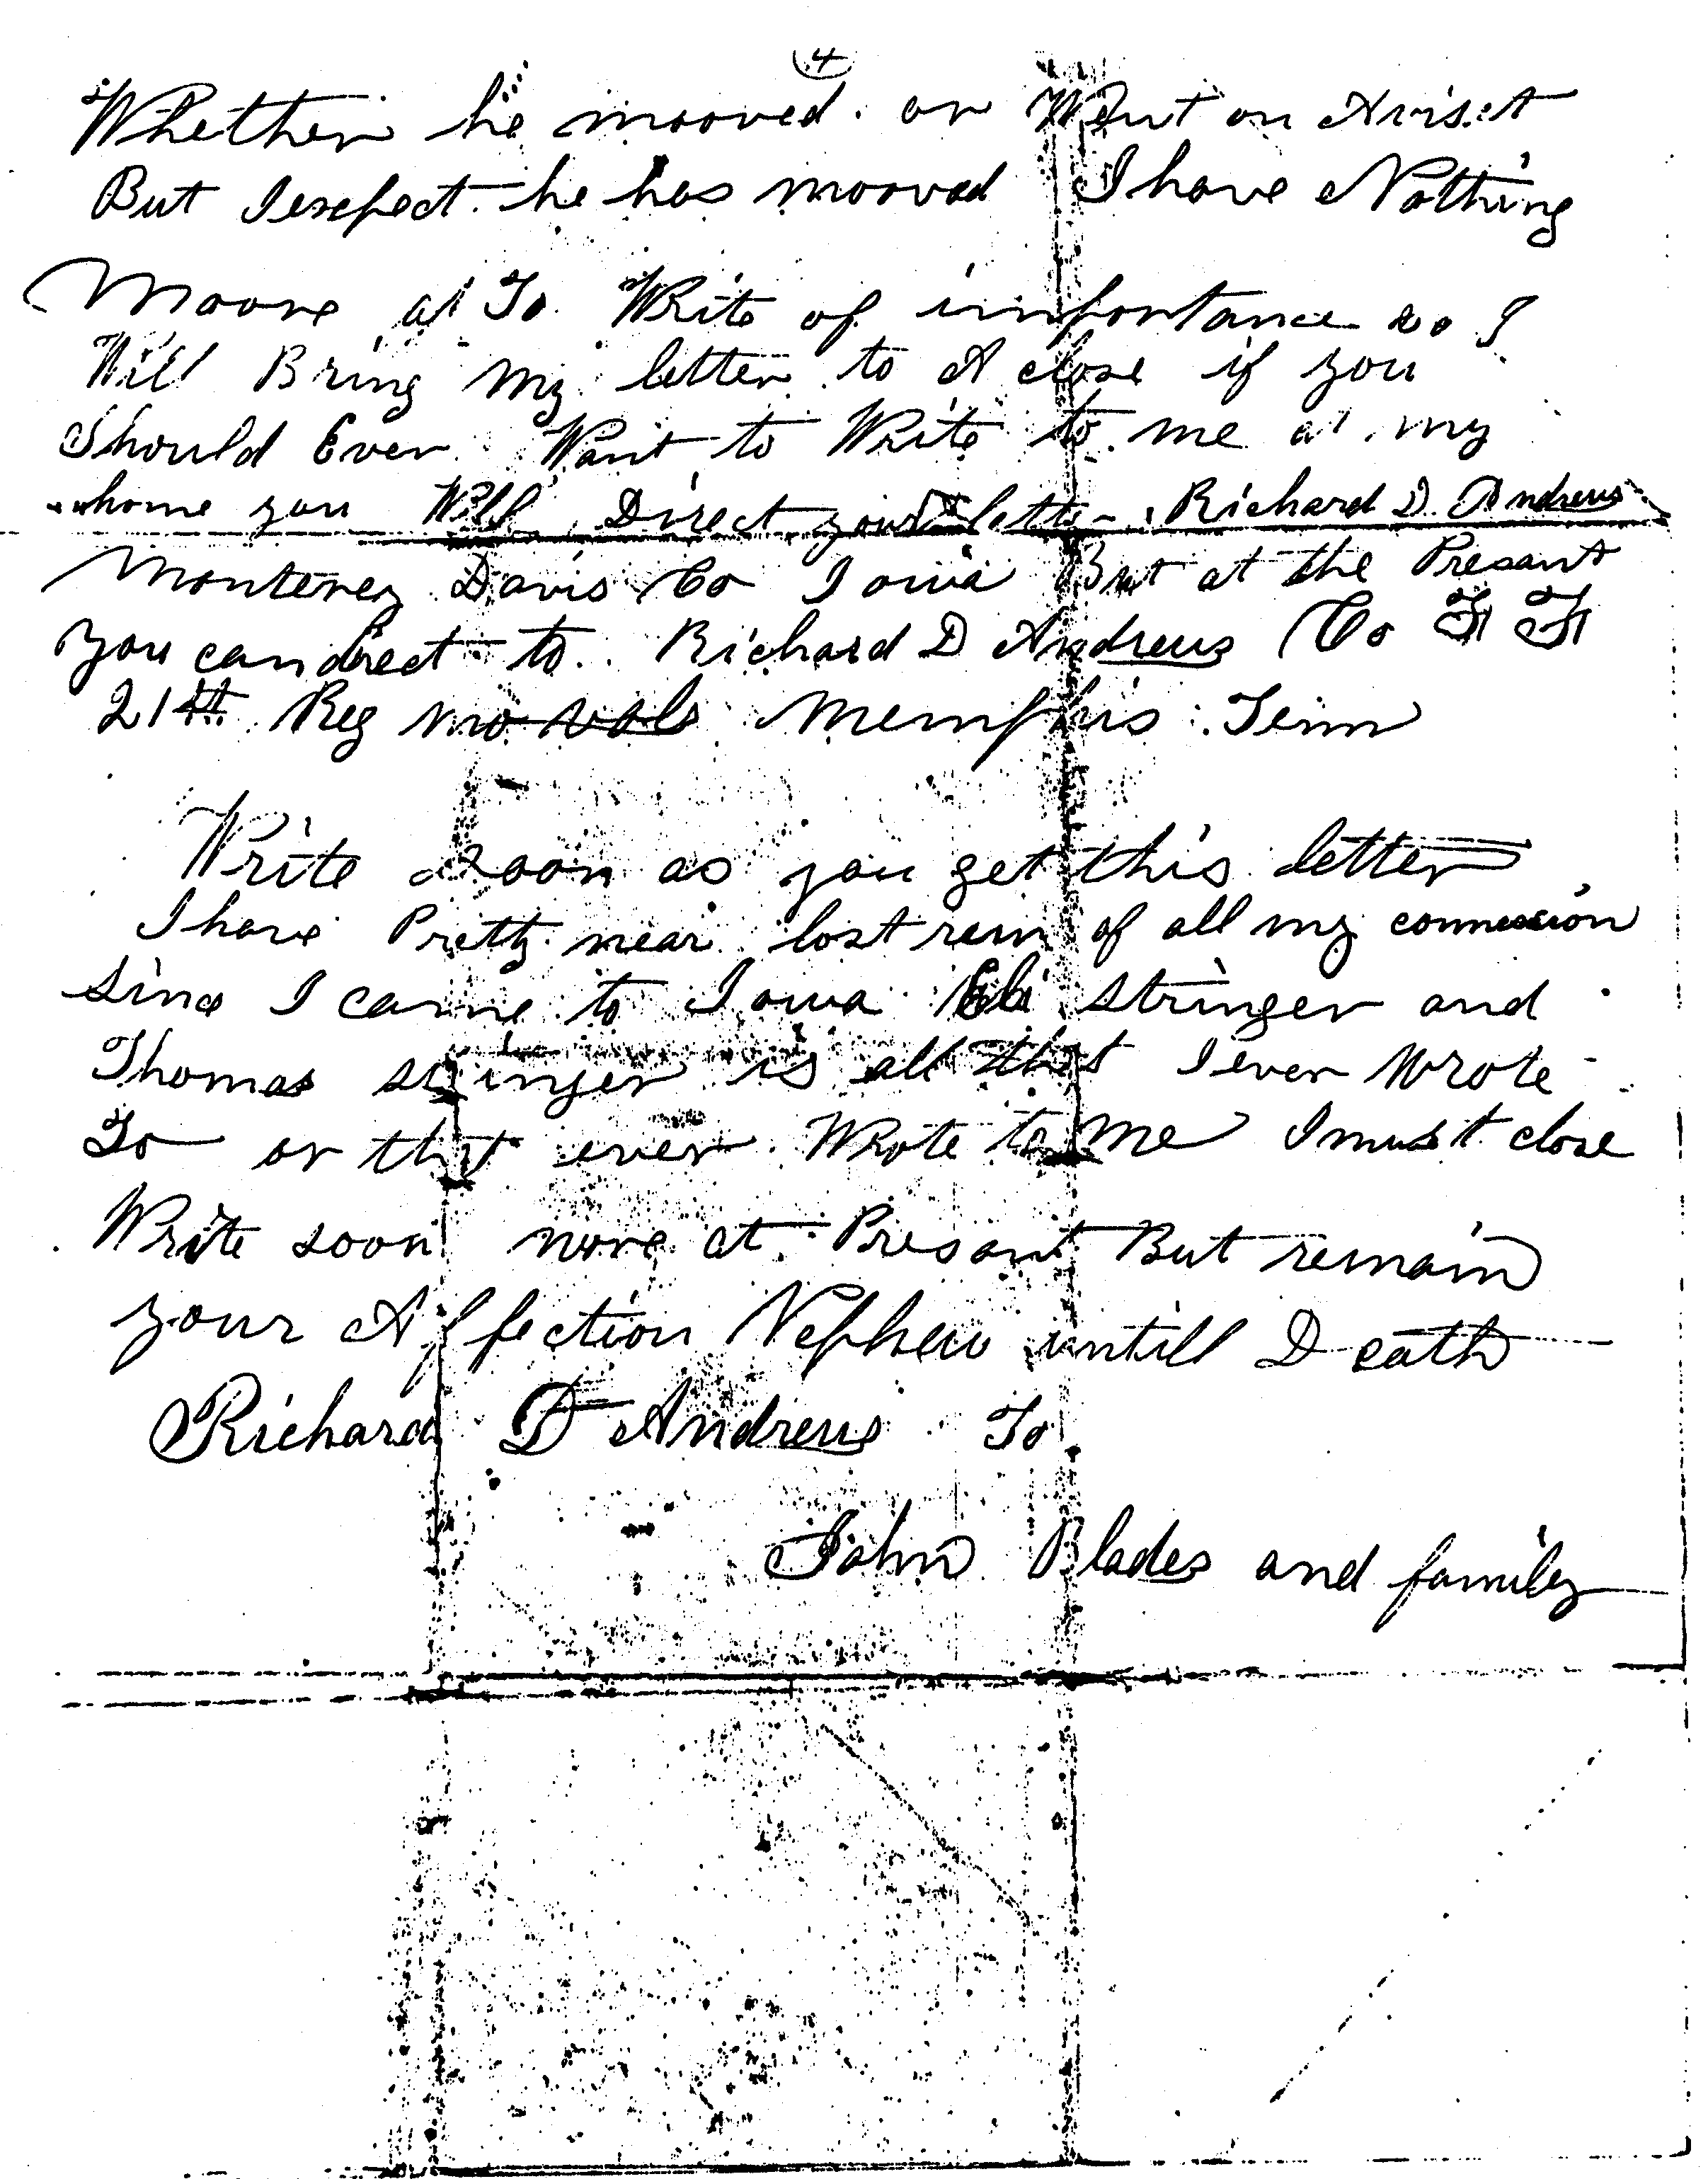 4
Whether he mooved or Went on Avisit
But Iexpect he has mooved I have Nothing
Moore at To Write of importance so I
Will Bring my letter to A close if you
Should Ever Want to Write to me at my
home you Will Direct your letter Richard D. Andrews
Monterey Davis Co Iowa But at the Presant
you candirect to Richard D Andrews Co
21st Reg mo vols Memphis Tenn
Write soon as you get this letter
I have Pretty near lost rem of all my connexion
since I came to Iowa Eli stringer and
Thomas stringer is all that Iever Wrote
To or that ever Wrote to me I must close
Write soon nore at Presant But remain
your Affection Nephew untill Death
Richard D Andrews To
John Blades and family